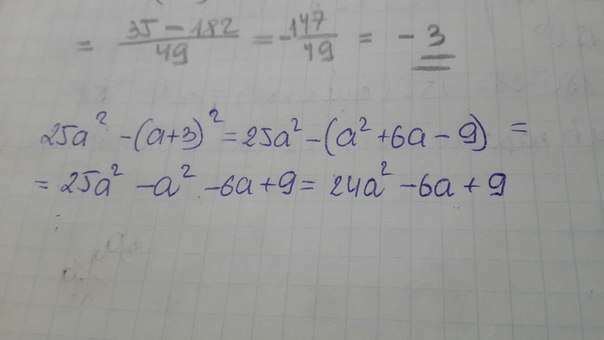 = (35 - 182)/49 = -147/49 = -3
25a² - (a+3)² = 25a² - (a² + 6a - 9) =
= 25a² - a² - 6a + 9 = 24a² - 6a + 9